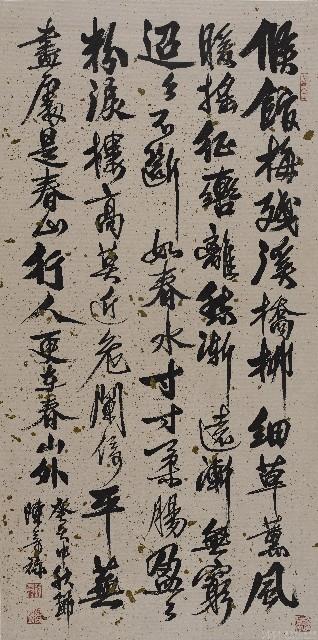 候館梅殘溪橋柳細草薰風
暖搖征轡離愁漸遠漸無窮
迢〻不斷如春水寸寸柔腸盈〻
粉淚樓高莫近危闌倚平蕪
盡處是春山行人更在春山外
中秋節
陳